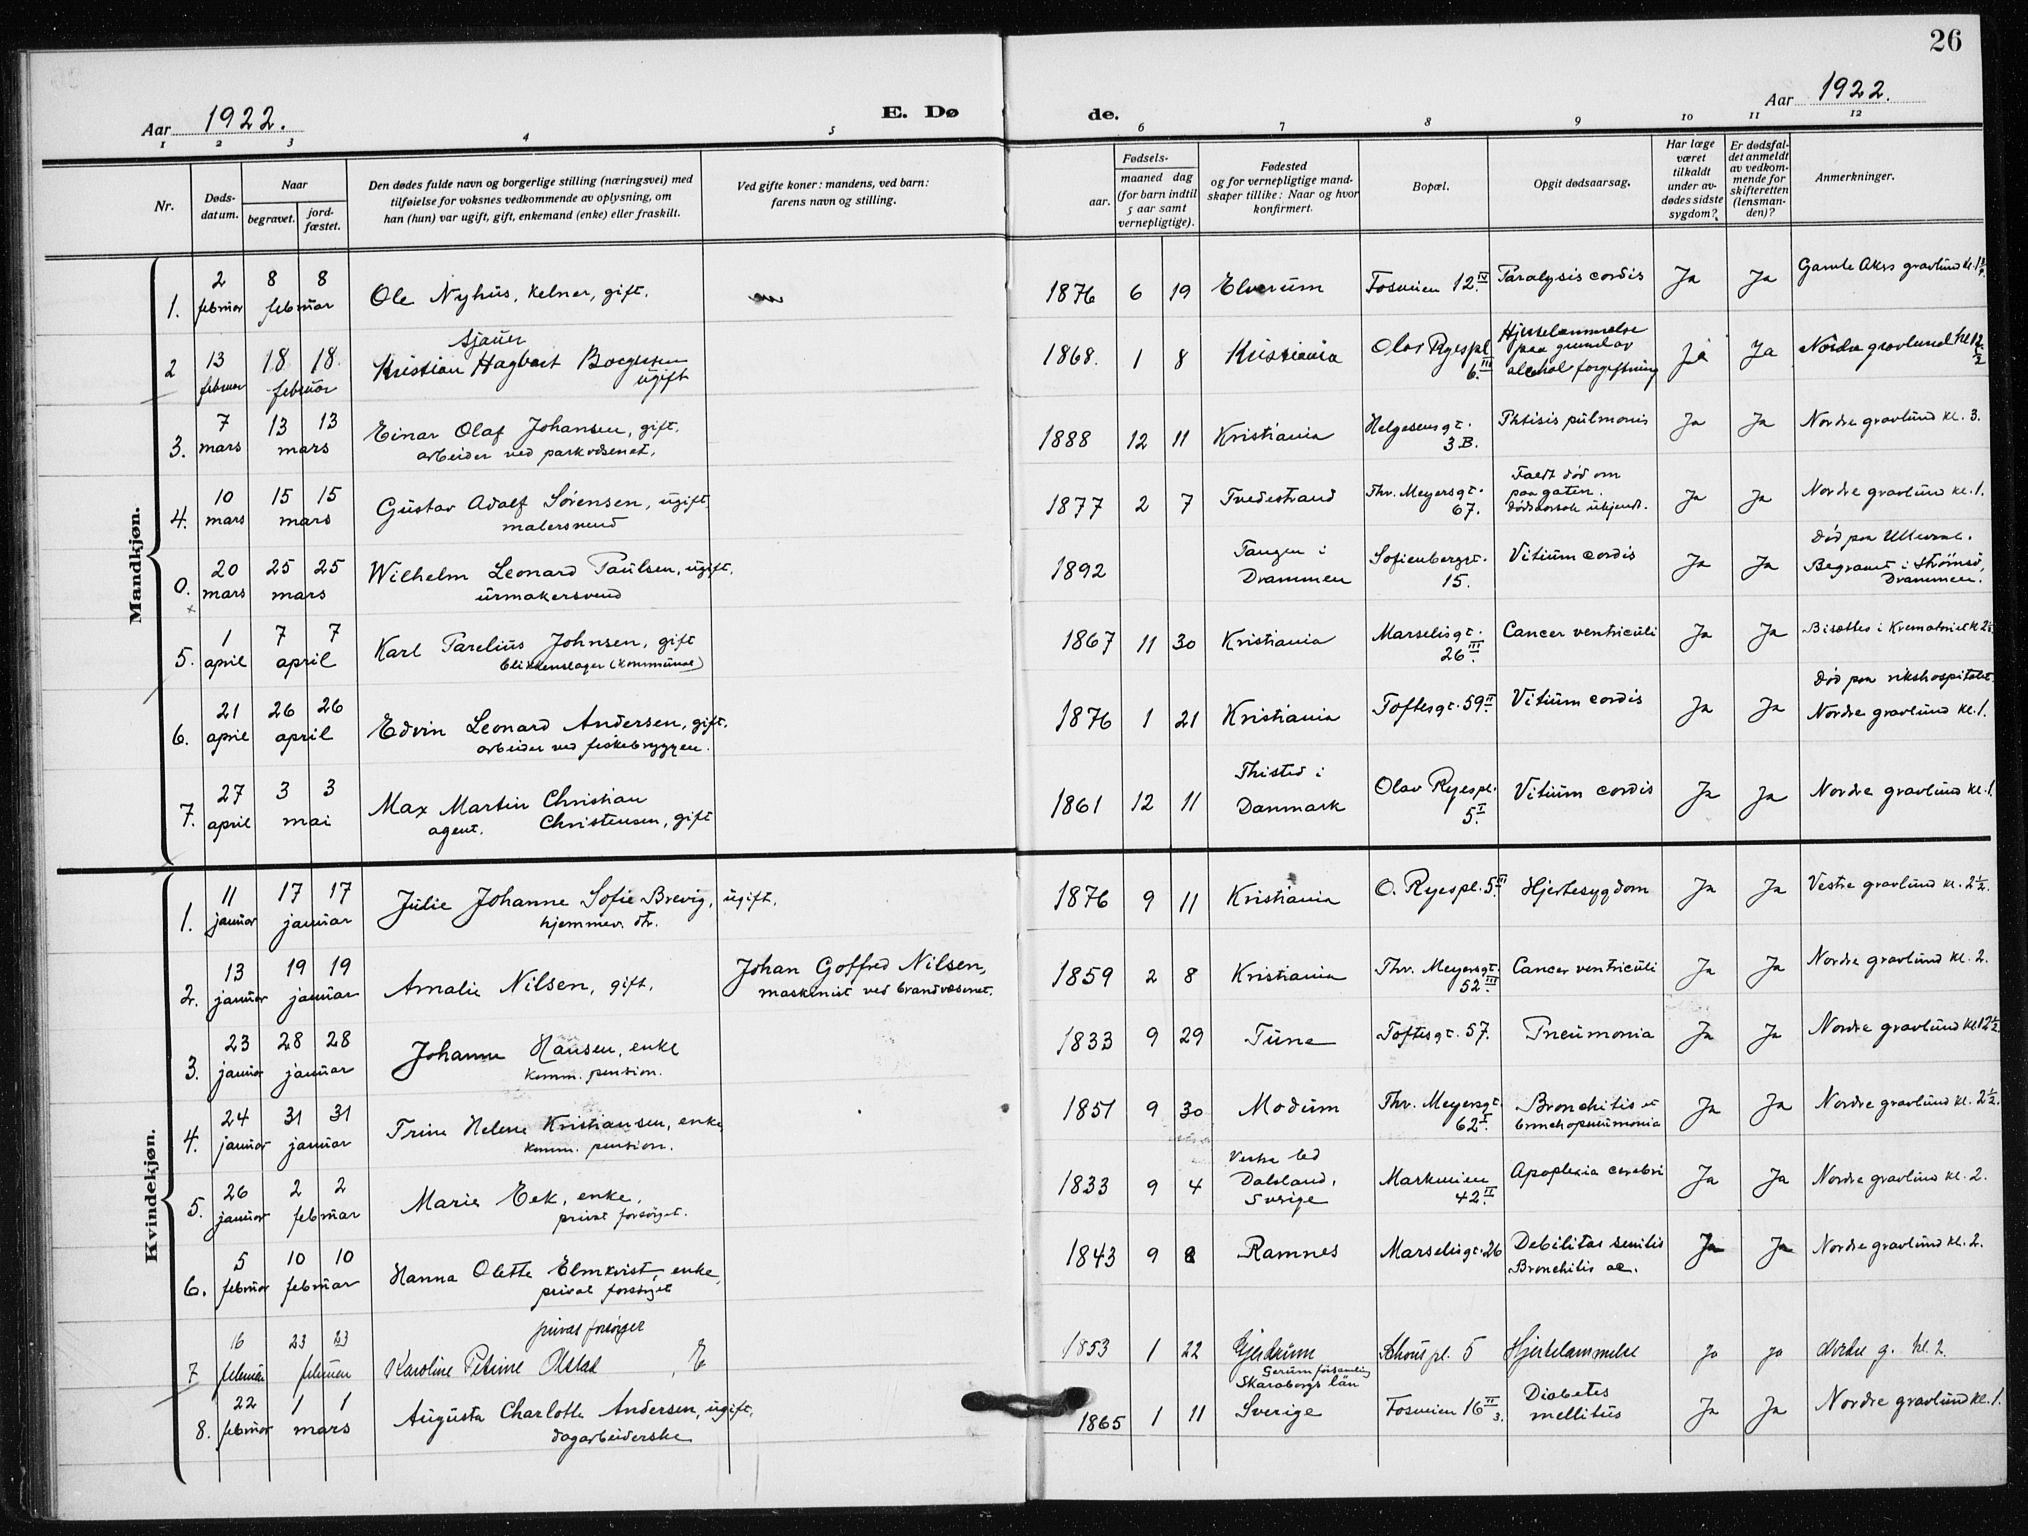 26
Aar 1922.
E. Døde.
Aar 1922.
1 2 3 4 5 6 7 8 9 10 11 12
Nr.
Døds-
datum.
Naar
begravet.
jord-
fæstet.
Den dødes fulde navn og borgerlige stilling (næringsvei) med
tilføielse for voksnes vedkommende av oplysning, om
han (hun) var ugift, gift, enkemand (enke) eller fraskilt.
Ved gifte koner: mandens, ved barn:
farens navn og stilling.
Fødsels-
aar.
maaned dag
(for barn indtil
5 aar samt
vernepligtige).
Fødested
og for vernepligtige mand-
skaper tillike: Naar og hvor
konfirmert.
Bopæl.
Opgit dødsaarsag.
Har læge
været
tilkaldt
under av-
dødes sidste
sygdom?
Er dødsfal-
det anmeldt
av vedkom-
mende for
skifteretten
(lensman-
den)?
Anmerkninger.
Mandkjøn.
1. 2 februar 8 8 februar Ole Nyhus, kelner, gift. 1876 6 19 Elverum Fosveien 12 IV Paralysis cordis Ja Ja Gamle Akers gravlund kl.
2 13 februar 18 18. februar Sjauer
Kristian Hagbart Borgersen
ugift 1868. 1 8 Kristiania Olav Ryespl 6. III Hjertelammelse
paa grund av
alcohol forgiftning Ja Ja Nordre gravlund kl 12 1/2
3. 7 mars 13 13 mars Einar Olaf Johansen, gift.
arbeider ved parkvæsenet. 1888 12 11 Kristiania Helgesensgt. 3 B. Phtisis pulmonis Ja Ja Nordre gravlund kl. 3.
4. 10 mars 15 15 mars Gustav Adolf Sørensen, ugift,
malersvend 1877 2 7 Tvedestrand Thv. Meyersgt. 67. Faldt død om
paa gaten.
dødsaarsak ukjendt. Ja Ja Nordre gravlund kl. 1.
0. 20 mars 25 25 mars Wilhelm Leonard Paulsen, ugift,
urmakersvend 1892 Tangen i
Drammen Sofienberggt. 15. Vitium cordis Ja Ja Død paa Ullevaal.
Begravet i Strømsø,
Drammen.
5. 1 april 7 7 april Karl Parelius Johnsen, gift
blikkenslager (kommunal) 1867 11 30 Kristiania Marselisgt. 26 III. Cancer ventriculi Ja Ja Bisættes i Krematoriet kl 2
6. 21 april 26 26 april Edvin Leonard Andersen, gift.
arbeider ved fiskebryggen. 1876 1 21 Kristiania Toftesgt. 59 II Vitium cordis Ja Ja Død paa rikshospitalet.
Nordre gravlund kl. 1.
7. 27 april 3 3 mai Max Martin Christian
agent. Christensen, gift 1861 12 11 Thisted i
Danmark Olav Ryespl. 5 I. Vitium cordis Ja Ja Nordre gravlund kl. 1.
Kvindekjøn.
1. 11 januar 17 17 januar Julie Johanne Sofie Brevig, ugift,
hjemmev. dtr. 1876 9 11 Kristiania O. Ryespl. 5 III Hjertesygdom Ja Ja Vestre gravlund kl. 2 1/2.
2. 13 januar 19 19 januar Amalie Nilsen, gift. Johan Gotfred Nilsen,
maskinist ved brandvæsenet. 1859 2 8 Kristiania Thv. Meyersgt. 52 III. Cancer ventriculi Ja Ja Nordre gravlund kl. 2.
3. 23 januar 28 28 januar Johanne Hansen, enke
komm. pension. 1833 9 29 Tune Toftesgt. 57. Pneumonia Ja Ja Nordre gravlund kl. 12 1/2.
4. 24 januar 31 31 januar Trine Helene Kristiansen, enke,
komm. pension. 1851 9 30 Modum Thv. Meyersgt. 62 I. Bronchitis et
bronchopneumonia Ja Ja Nordre gravlund kl. 2 1/2.
5. 26 januar 2 2 februar Marie Eek, enke,
privat forsørget. 1833 9 4 Dalsland,
Sverige Markveien 42 II. Apoplexia cerebri Ja Ja Nordre gravlund kl. 2.
6. 5 februar 10 10 februar Hanna Olette Elmkvist, enke,
privat forsørget 1843 9 8 Ramnes Marselisgt. 26 Debilitas senilis
Bronchitis ac. Ja Ja Nordre gravlund kl. 2.
7 16 februar 23 23 februar privat forsørget
Karoline Petrine Olstad, E 1853 1 22 Gjerdrum Schouspl. 5 Hjertelammelse ja ja kl. 2.
8. 22 februar 1 1 mars Augusta Charlotte Andersen, ugift,
dagarbeiderske 1865 1 11 Gerum församling
Skaraborgs län
Sverige Fosveien 16 II 3. Diabetes
mellitus Ja Ja Nordre gravlund kl. 1.